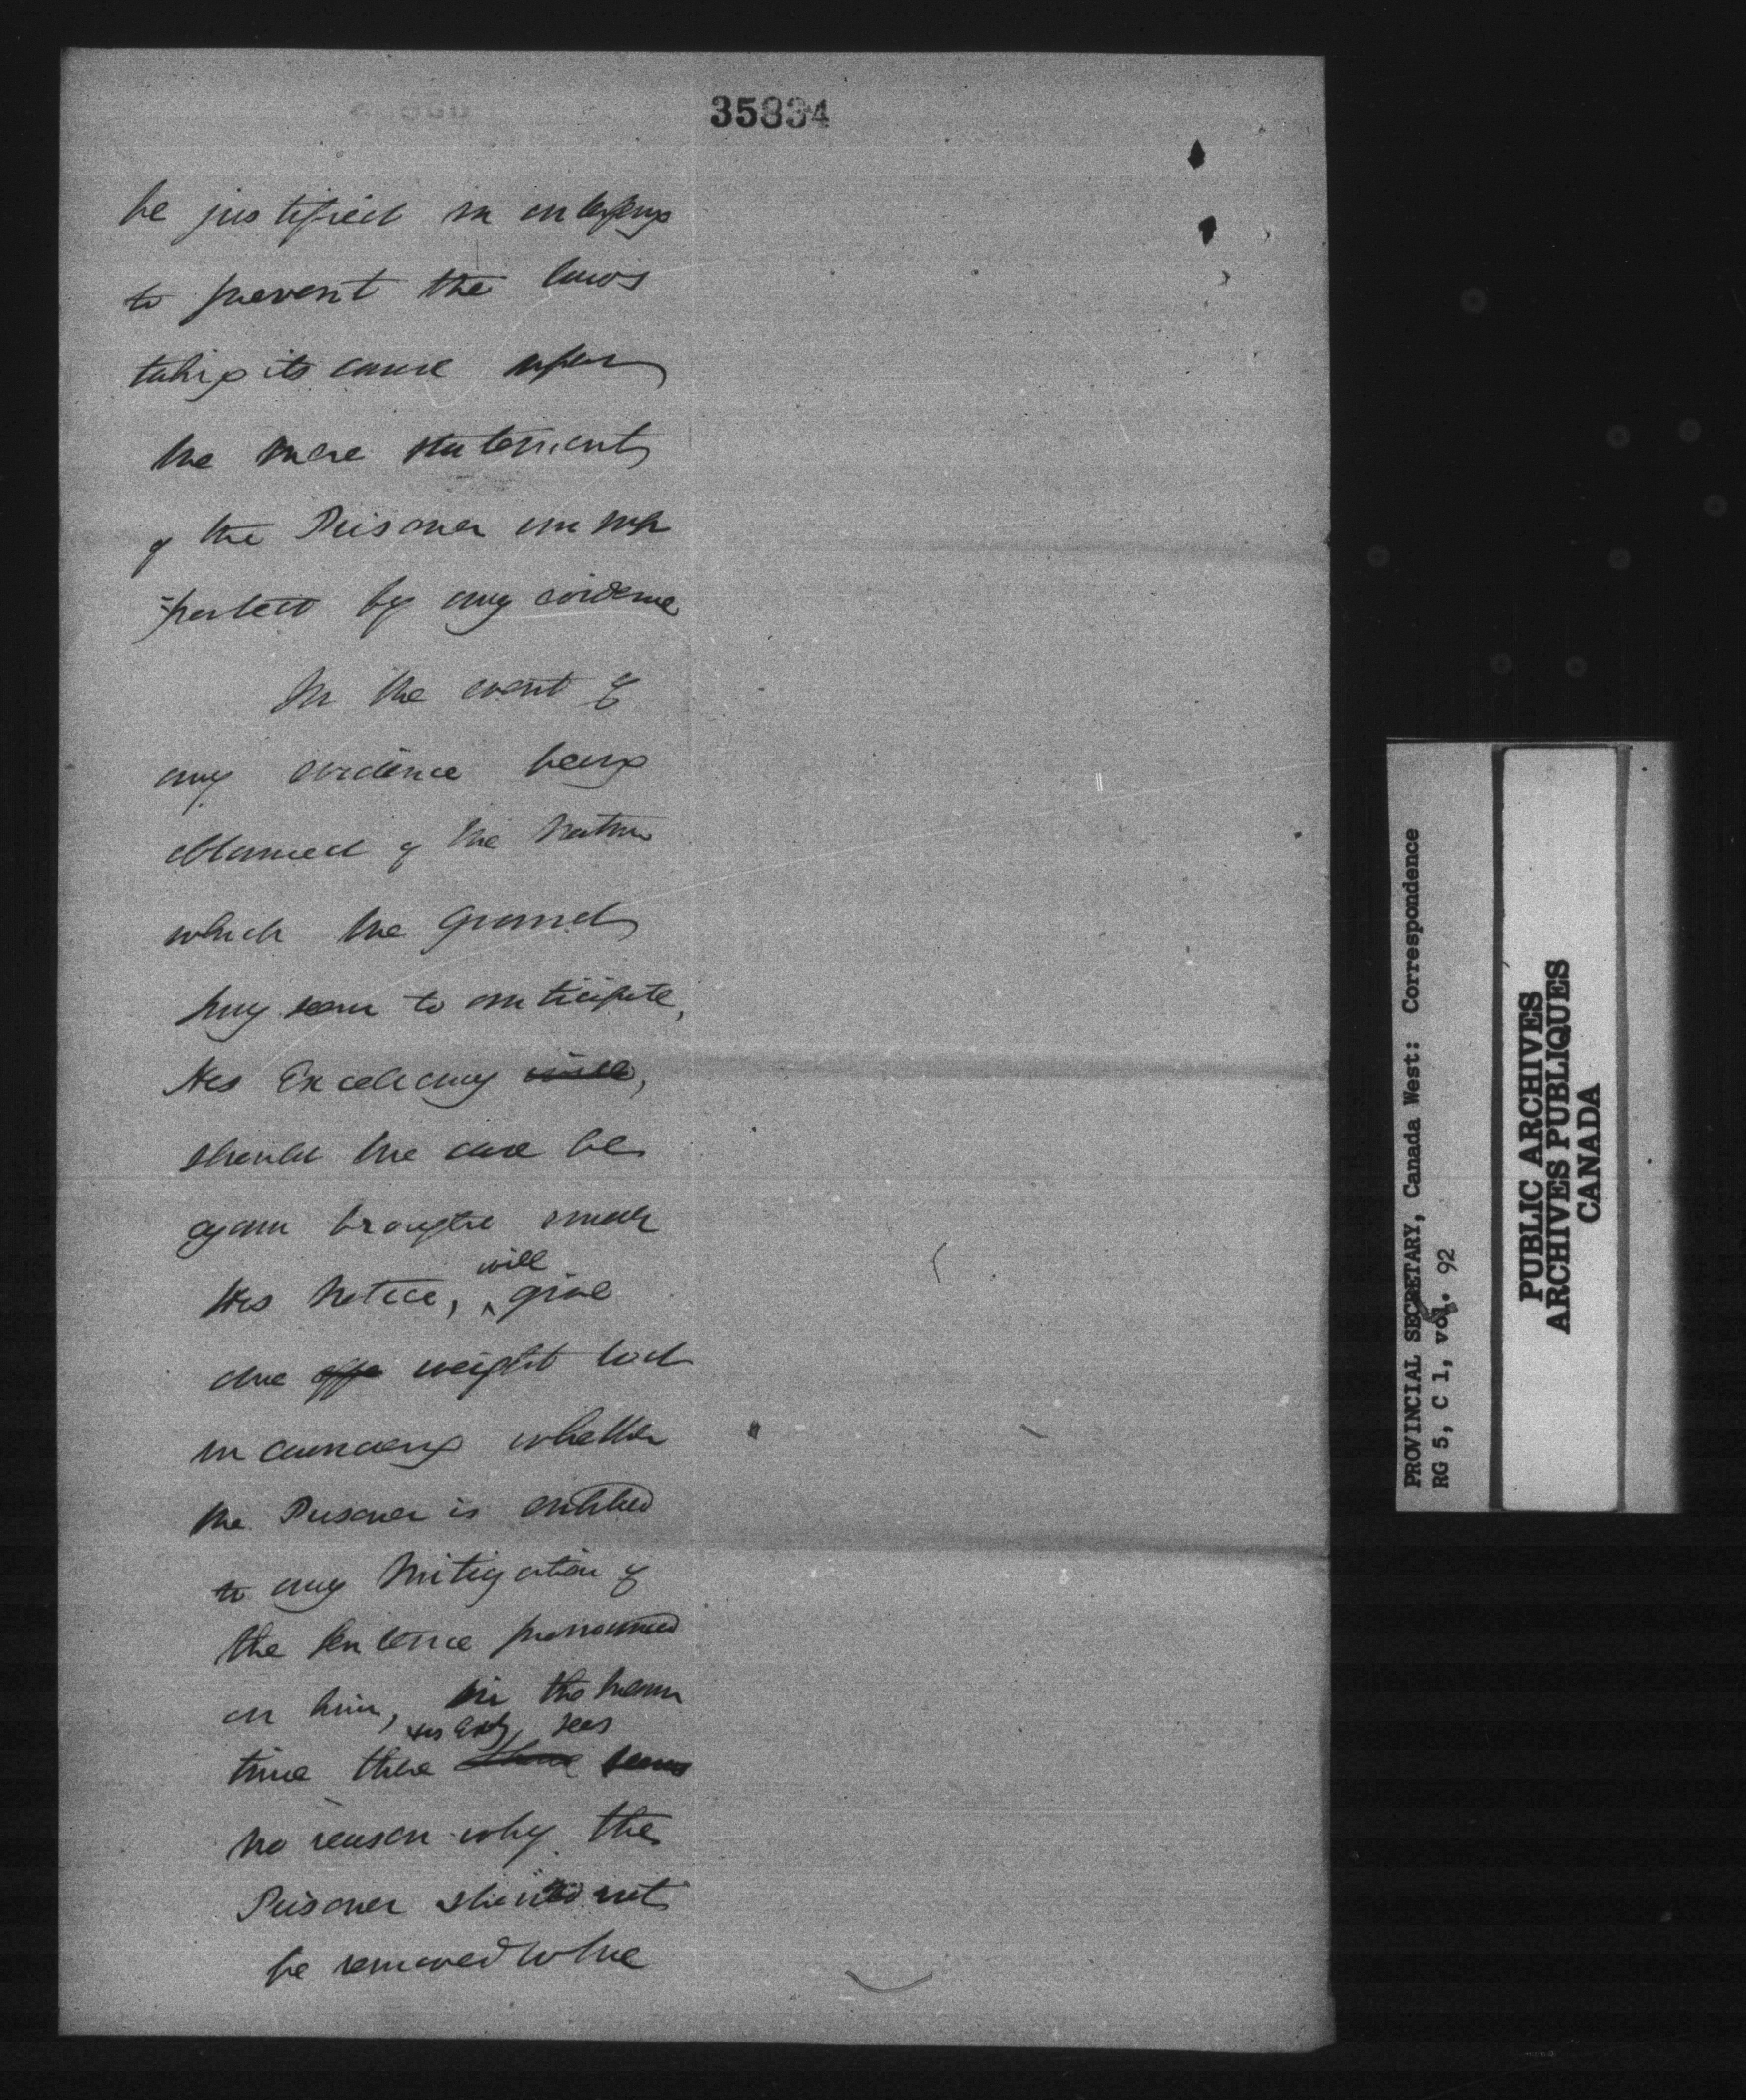 35834
be justified in interfering
to prevent the laws
taking its course upon
the mere statements
of the Prisoner unsup
=ported by any evidence
In the event of
any evidence being
obtained of the nature
which the Grand
Jury seem to anticipate,
His Excellency will,
should the case be
again brought under
His notice, will give
due weight to it
in considering whether
the Prisoner is entitled
to any mitigation of
the sentence pronounced
on him, in the mean
His Exc'y sees
time there there seems
no reason why the
Prisoner should not
be removed to the
PROVINCIAL SECRETARY, Canada West: Correspondence
RG 5, C 1, vol. 92
PUBLIC ARCHIVES
ARCHIVES PUBLIQUES
CANADA